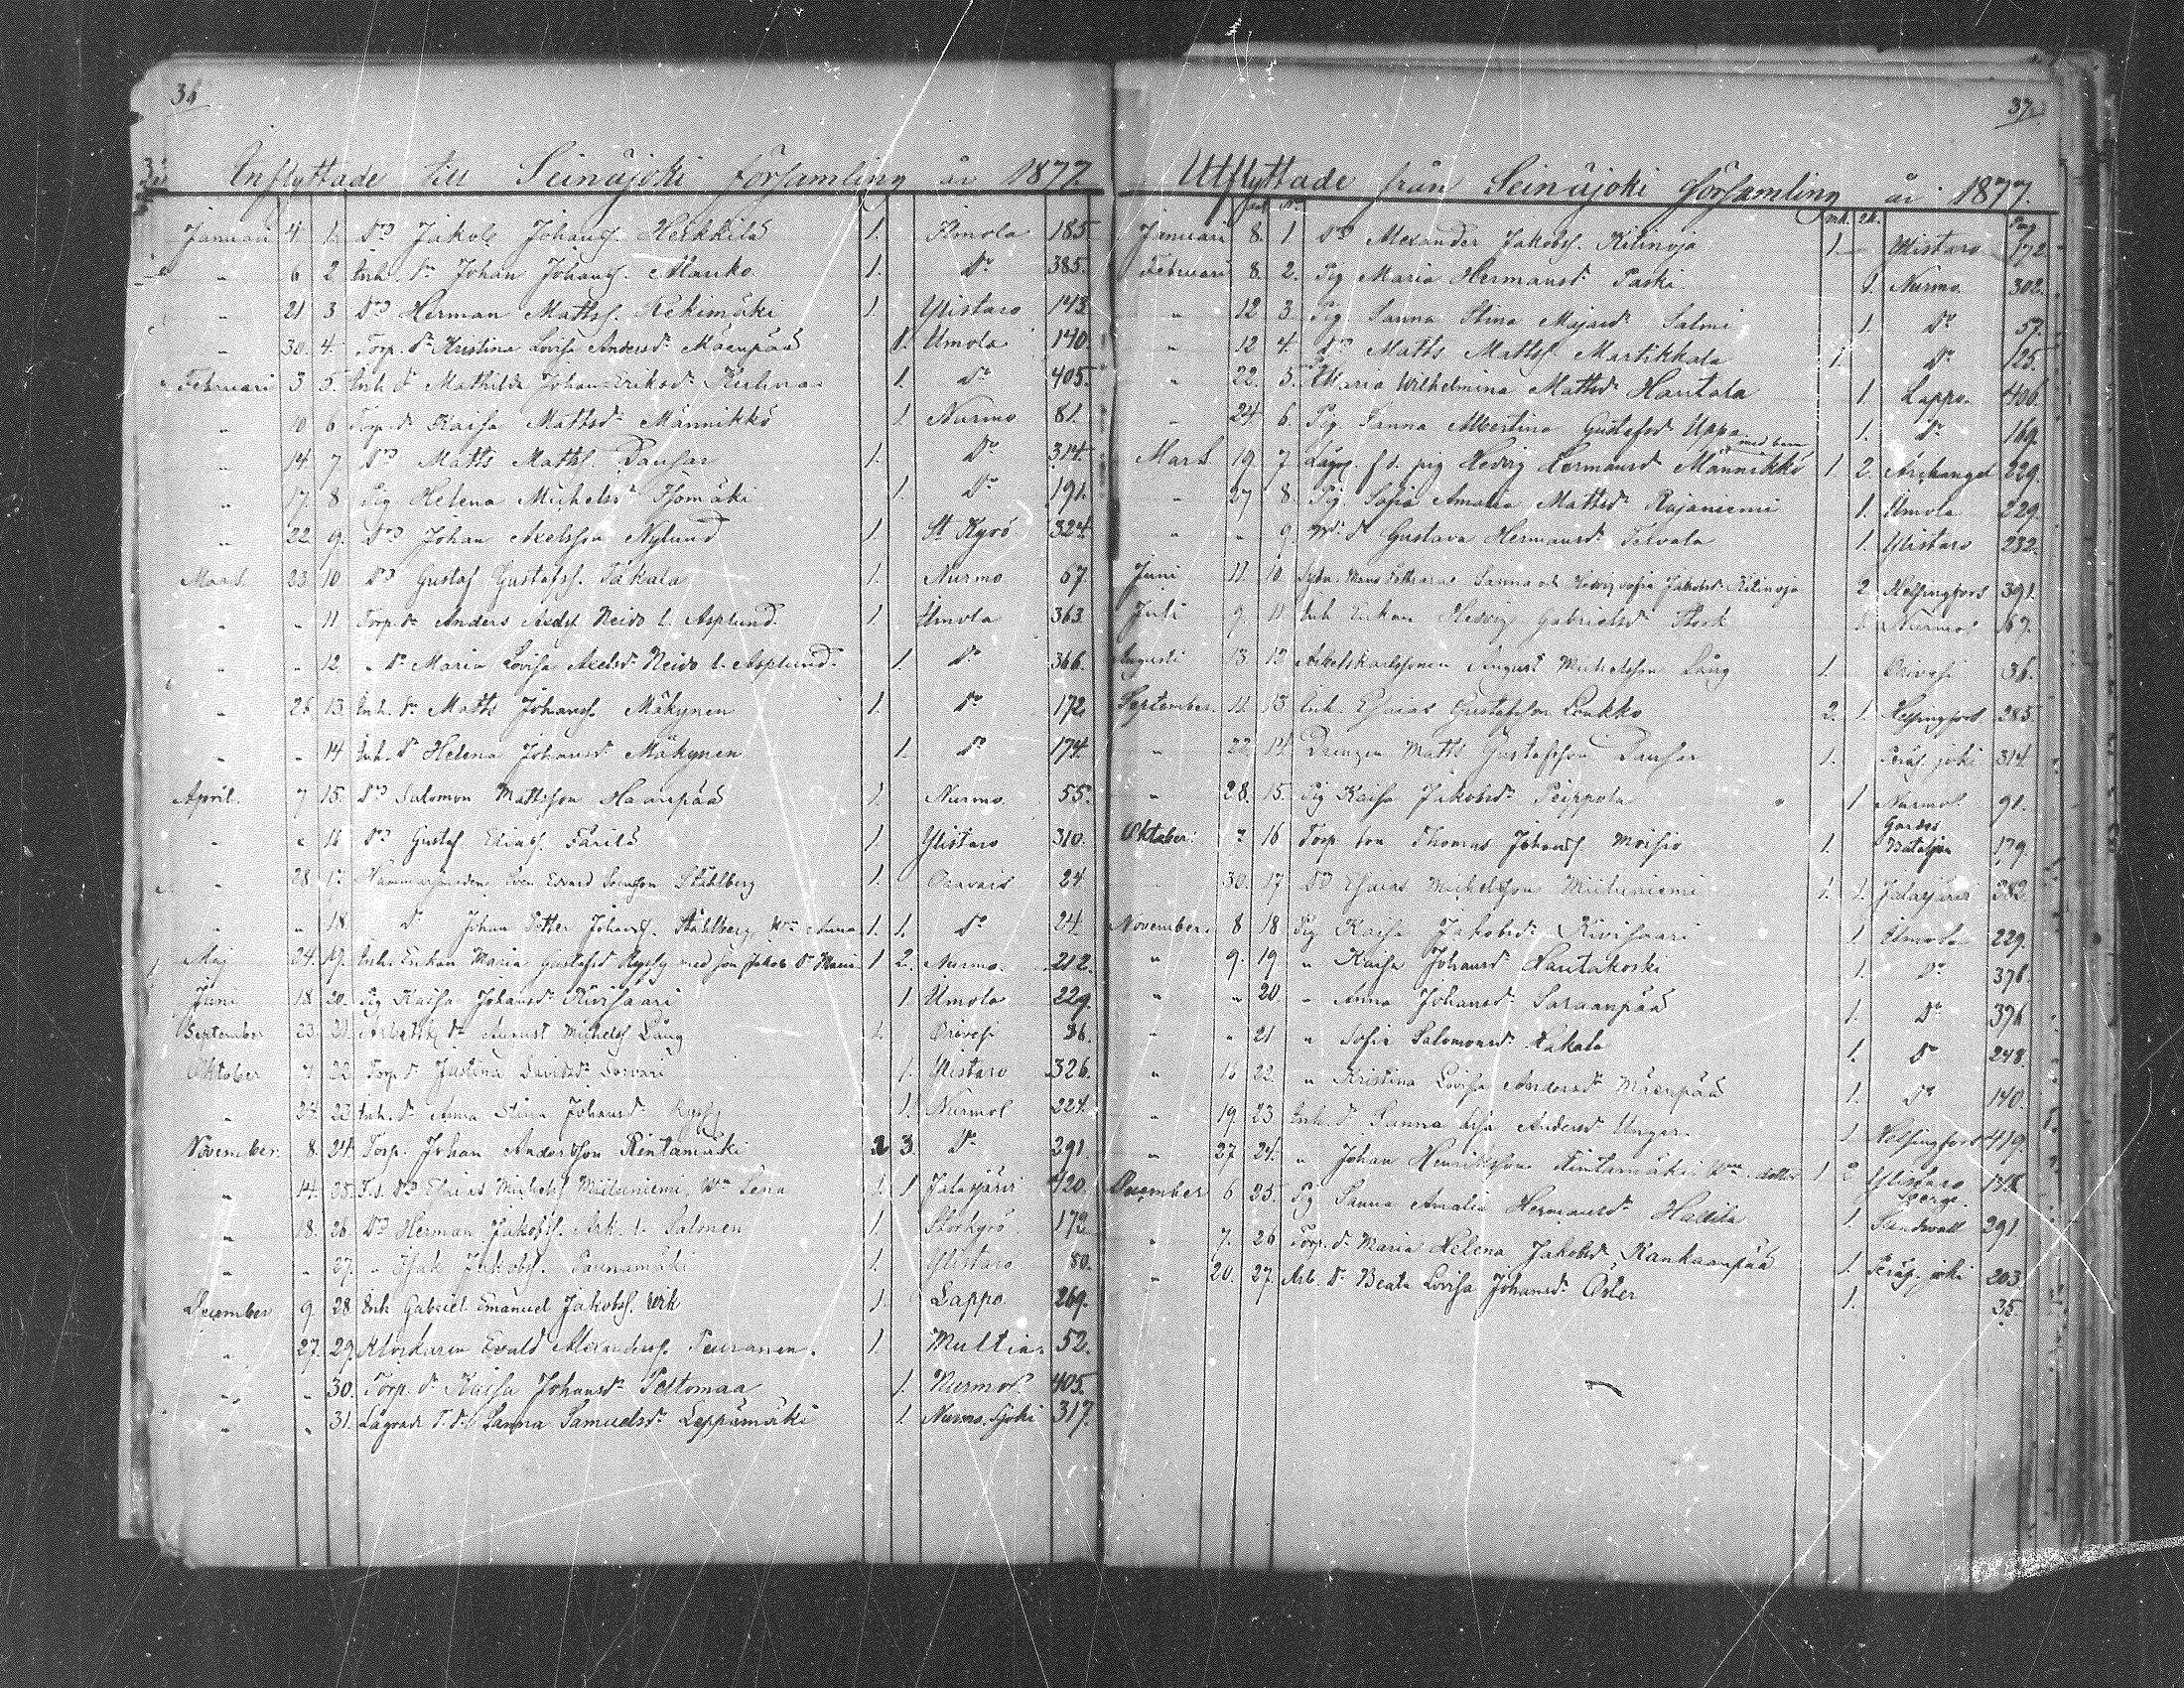 36
Inflyttade till Seinäjoki församling år 1877.
Januari 4. 1. Dr Jakob Johansf. Heikkilä 1. Ilmola 185.
" 6 2. Inh. Dr Johan Johansf. Marko 1. Do 385.
" 21 3 Dr Herman Mattsf. Rekimäki 1. Ylistaro 143.
" 30. 4. Torp. Dr Kristina Lovisa Andersdr Mäenpää 1. Ilmola 140.
Februari 3 5. Inh dr Mathilda Johan Eriksdr 1. Do 405.
" 10 6 Torp. dr Kaisa Mattsdr Männikkö 1. Nurmo 81.
" 14. 7. Dr Matts Mattsf. Danfar 1. Do 314.
" 17. 8 Pig. Helena Michelsdr Isomäki 1. Do 191.
" 22. 9. Dr Johan Axelsson Nylund 1. St Kyrö 324.
Mars. 23. 10 Dr Gustaf Gustafsf. Täkala 1. Nurmo 67.
" " 11 Torp. Dr Anders Axelsf. Neiro l. Asplund. 1. Ilmola 363.
" " 12. " Dr Maria Lovisa Axelsdr Neiro l. Asplund. 1. Do 366.
" 26 13. Inh. Dr Matts Johansf. Mäkynen 1. Do 172.
" " 14 Inh. Dr Helena Johansdr Mäkynen 1. Do 174.
April. 7 15. Dr Salomon Mattsson Haanpää 1. Nurmo. 55.
" " 16 Dr Gustaf Eliasf. Färilä 1. Ylistaro 310.
" 28 17 Hammarsmeden Sven Edvard Svensson Ståhlberg 1. Oravais 24.
" " 18. Dr Johan Petter Johansf. Ståhlberg, Wm Anna 1. 1. Do 24.
Maj 24. 19. Inh. Enkan Maria Gustafsdr Ryssy med son Jakob Dr Maria 1 2. Nurmo. 212.
Juni 18 20. Pig Kaisa Johansdr Kivisaari 1 Ilmola 229.
September 23. 21. Arbetsk. Dr August Michelsf Lång 1. Orivesi 36.
Oktober 7 22. Torp. dr Justina Davidsdr 1. Ylistaro 326.
" 24. 23 Inh. Dr Anna Stina Johansdr Ryssy 1. Nurmo 224.
November. 8. 24. Torp. Johan Andersson Rintamäki 2 3. Do 291.
" 14. 25. F.d. Dr Esaias Michelsf Miiluniemi, Wm Lena 1. 1 Jalasjärvi 420.
" 18. 26. Dr Herman Jakobsf. Ark. l. Salmen 1. Storkyrö 172.
" " 27. " Isak Jakobsf. Paunamäki 1. Ylistaro 80.
December 9. 28. Inh Gabriel Emanuel Jakobsf. Wik 1. Lappo 269.
" 27. 29. Klockaren Evald Alexandersf. Peuranen. 1. Multia 52.
" " 30. Torp. Dr Kaisa Johansdr Peltomaa 1. Nurmo. 405.
" " 31. Lägrade P. Dr Sanna Samuelsdr Leppämäki 1. Nurmo, Sjoki 317.
37.
Utflyttade från Seinäjoki församling år 1877.
dat. No. mk. qk. Pag
Januari 8. 1 Dr Alexander Jakobsf. Kilinoja 1. Ylistaro 172.
Februari 8. 2. Pig Maria Hermansdr Paski 1. Nurmo. 302.
" 12 3. Pig. Sanna Stina Majasdr Salmi 1. Do 57.
" 12 4. Dr Matts Mattsf. Martikkala 1. Do 125.
" 22. 5. Maria Wilhelmina Mattsdr Hautala 1. Lappo. 406.
" 24. 6. Pig. Sanna Albertina Gustafsdr Uppa 1. Do 169.
Mars. 19 7 Lägrp. f.d. pig Hedvig Hermansdr Männikkö med barn 1 2. Archangel 229.
" 27 8. Pig. Sofia Amalia Mattsdr Rajaniemi 1. Ilmola 229.
" " 9. Gustava Hermansdr 1. Ylistaro 232.
Juni 11. 10. Sanna och Hedvig Sofia Jakobsdr Kilinoja 2 Helsingfors 391.
Juli 9. 11 Inh Enkan Hedvig Gabrielsdr 1. Nurmo 67.
Augusti 13. 12 Arbetskarlssonen August Michelsson Lång 1. Orivesi 36.
September. 11. 13 Inh. Esaias Gustafsson Loukko 2. 1. Helsingfors 285.
" 22. 14 Drengen Matts Gustafsson Danfar 1. Peräs. joki 314.
" 28. 15. Pig Kaisa Jakobsdr Peippola 1 Nurmo. 91.
Oktober. 7 16 Torp. son Thomas Johansf Moisio 1. Gardes Bataljon 179.
" 30. 17 Dr Esaias Michelsson Miiluniemi 1. 1. Jalasjärvi 282.
November. 8 18 Pig Kaisa Jakobsdr Kivisaari 1 Ilmola 229.
" 9. 19 " Kaisa Johansdr Lautakoski 1. Do 376.
" " 20 " Anna Johansdr Saraanpää 1. Do 376
" " 21 " Sofia Salomonsdr Hakala 1. Do 248.
" 16 22. " Kristina Lovisa Andersdr Mäenpää 1. Do 140.
" 19. 23. Inh. dr Sanna Lisa Andersdr Unger. 1 Helsingfors 419.
" 27 24. " Johan Henriksson Rintamäki, Wm. dotter 1 2 Ylistaro
December 6 25. Pig Sanna Amalia Hermansdr Hallila 1. Sverge. Sundsvall 291.
" 7. 26 Torp. dr Maria Helena Jakobsdr Kankaanpää 1. Peräs. joki 203
" 20. 27. Arb. Dr Beata Lovisa Johansdr Öster 1. 35.